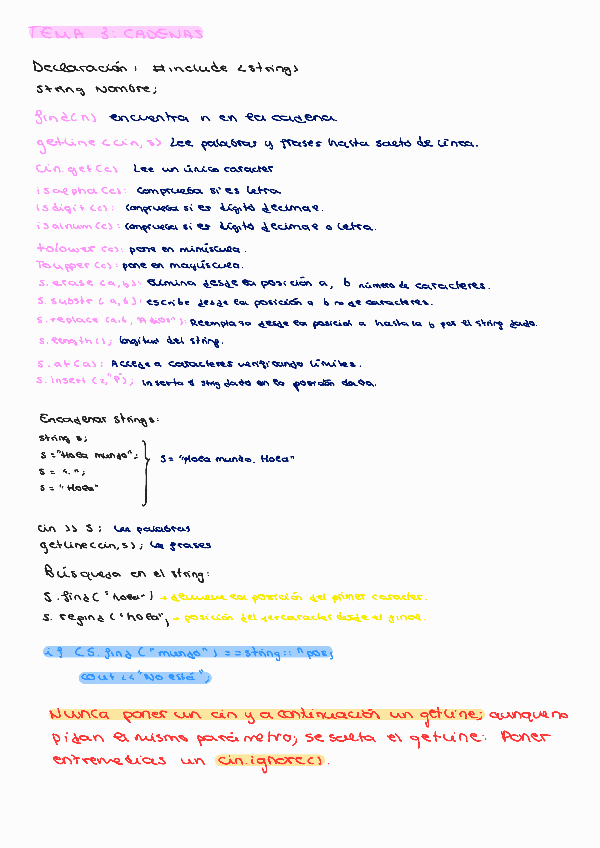 TEMA 3: CADENAS
Declaración: #include <string>
String Nombre;
find(n) encuentra n en la cadena
getline(cin, s) Lee palabras y frases hasta salto de línea.
Cin.get(c) Lee un único caracter
isalpha(c): Comprueba si es letra
isdigit(c): Comprueba si es dígito decimal.
isalnum(c): Comprueba si es dígito decimal o letra.
tolower(c): pone en minúscula.
Toupper(c): pone en mayúscula.
s.erase(a,b): Elimina desde la posición a, b número de caracteres.
s.substr(a,b): escribe desde la posición a b no de caracteres.
s.replace(a,b, "Adios"): Reemplaza desde la posición a hasta la b por el string dado.
s.length(); longitud del string.
s.at(a): Accede a caracteres verificando límites.
s.insert(2,"P"); inserta el string dado en la posición dada.
Encadenar strings:
string s;
s = "Hola mundo";
s = ". ";
s = "Hola"
s = "Hola mundo. Hola"
cin >> s; lee palabras
getline(cin,s); lee frases
Búsqueda en el string:
S.find("hola") → devuelve la posición del primer caracter.
s. repind ("hola"; → posición del 1er caracter desde el final.
if (S.find("mundo") == string::npos;
cout << "No está";
Nunca poner un cin y a continuación un getline; aunque no
pidan el mismo parámetro; se salta el getline. Poner
entremedias un cin.ignore().